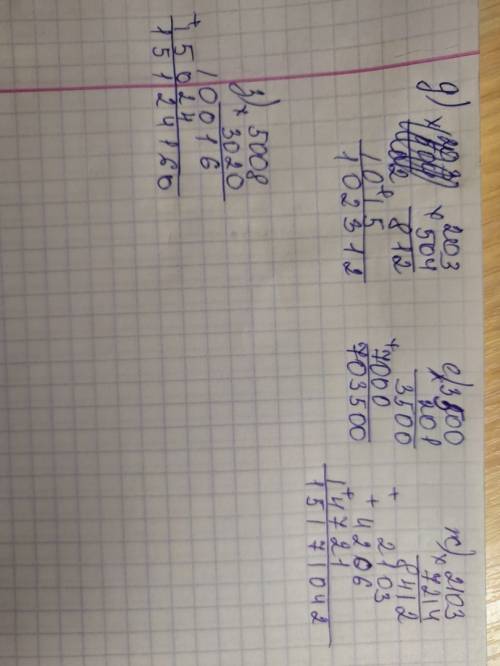 д) × 203
504
812
+
1015
102312
е) × 3500
201
3500
+ 7000
703500
ж) × 2103
7214
8412
+ 2103
+ 4206
+ 14721
15171042
з) × 5008
3020
10016
+ 15024
15124160